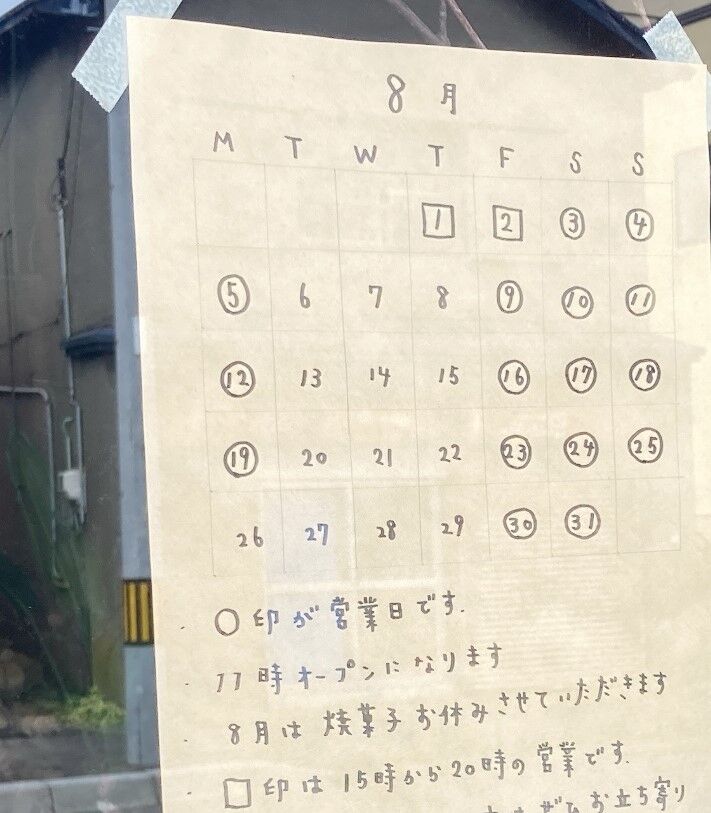 8月
M T W T F S S
1 2 3 4
5 6 7 8 9 10 11
12 13 14 15 16 17 18
19 20 21 22 23 24 25
26 27 28 29 30 31
・○印が営業日です.
・11時オープンになります
・8月は焼菓子お休みさせていただきます
・□印は15時から20時の営業です.
ぜひお立ち寄り